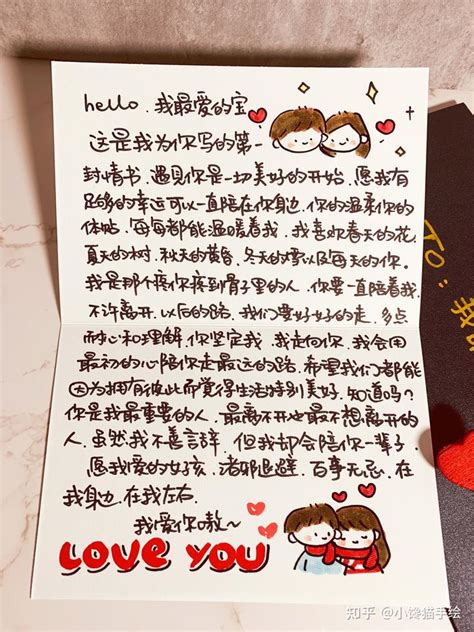 hello.我最爱的宝
这是我为你写的第一
封情书.遇见你是一切美好的开始.愿我有
足够的幸运可以一直陪在你身边.你的温柔你的
体帖.每每都能温暖着我.我喜欢春天的花.
夏天的树.秋天的黄昏.冬天的雪以及每天的你.
我是那个疼你疼到骨子里的人.你要一直陪着我.
不许离开.以后的路.我们要好好的走.多点
耐心和理解.你坚定我.我走向你.我会用
最初的心陪你走最远的路.希望我们都能
因为拥有彼此而觉得生活特别美好.知道吗?
你是我最重要的人.最离不开也最不想离开的
人.虽然我不善言辞.但我却会陪你一辈子.
愿我爱的女孩.诸邪退避.百事无忌.在
我身边.在我左右.
我爱你嗷~
LOVE YOU
TO:我
知乎 @小馋猫手绘